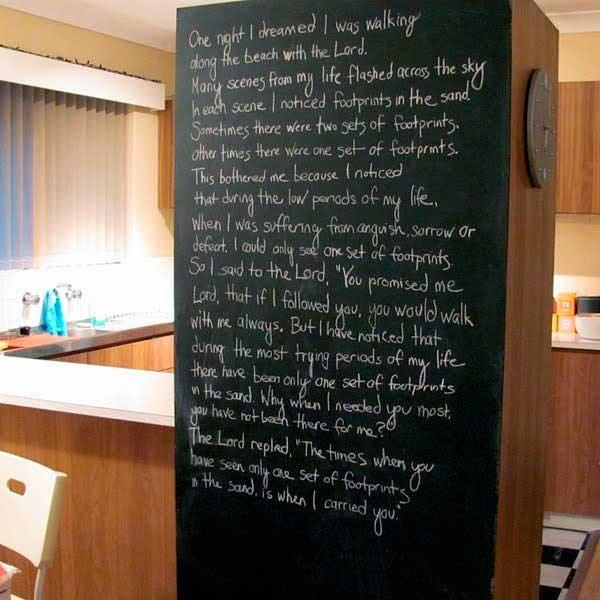 One night I dreamed I was walking
along the beach with the Lord.
Many scenes from my life flashed across the sky
In each scene I noticed footprints in the sand
Sometimes there were two sets of footprints.
other times there were one set of footprints.
This bothered me because I noticed
that during the low periods of my life,
When I was suffering from anguish, sorrow or
defeat. I could only see one set of footprints
So I said to the Lord, "You promised me
Lord, that if I followed you, you would walk
with me always. But I have noticed that
during the most trying periods of my life
there have been only one set of footprints
in the sand. Why, when I needed you most,
you have not been there for me?
The Lord replied, "The times when you
have seen only one set of footprints
in the sand, is when I carried you."